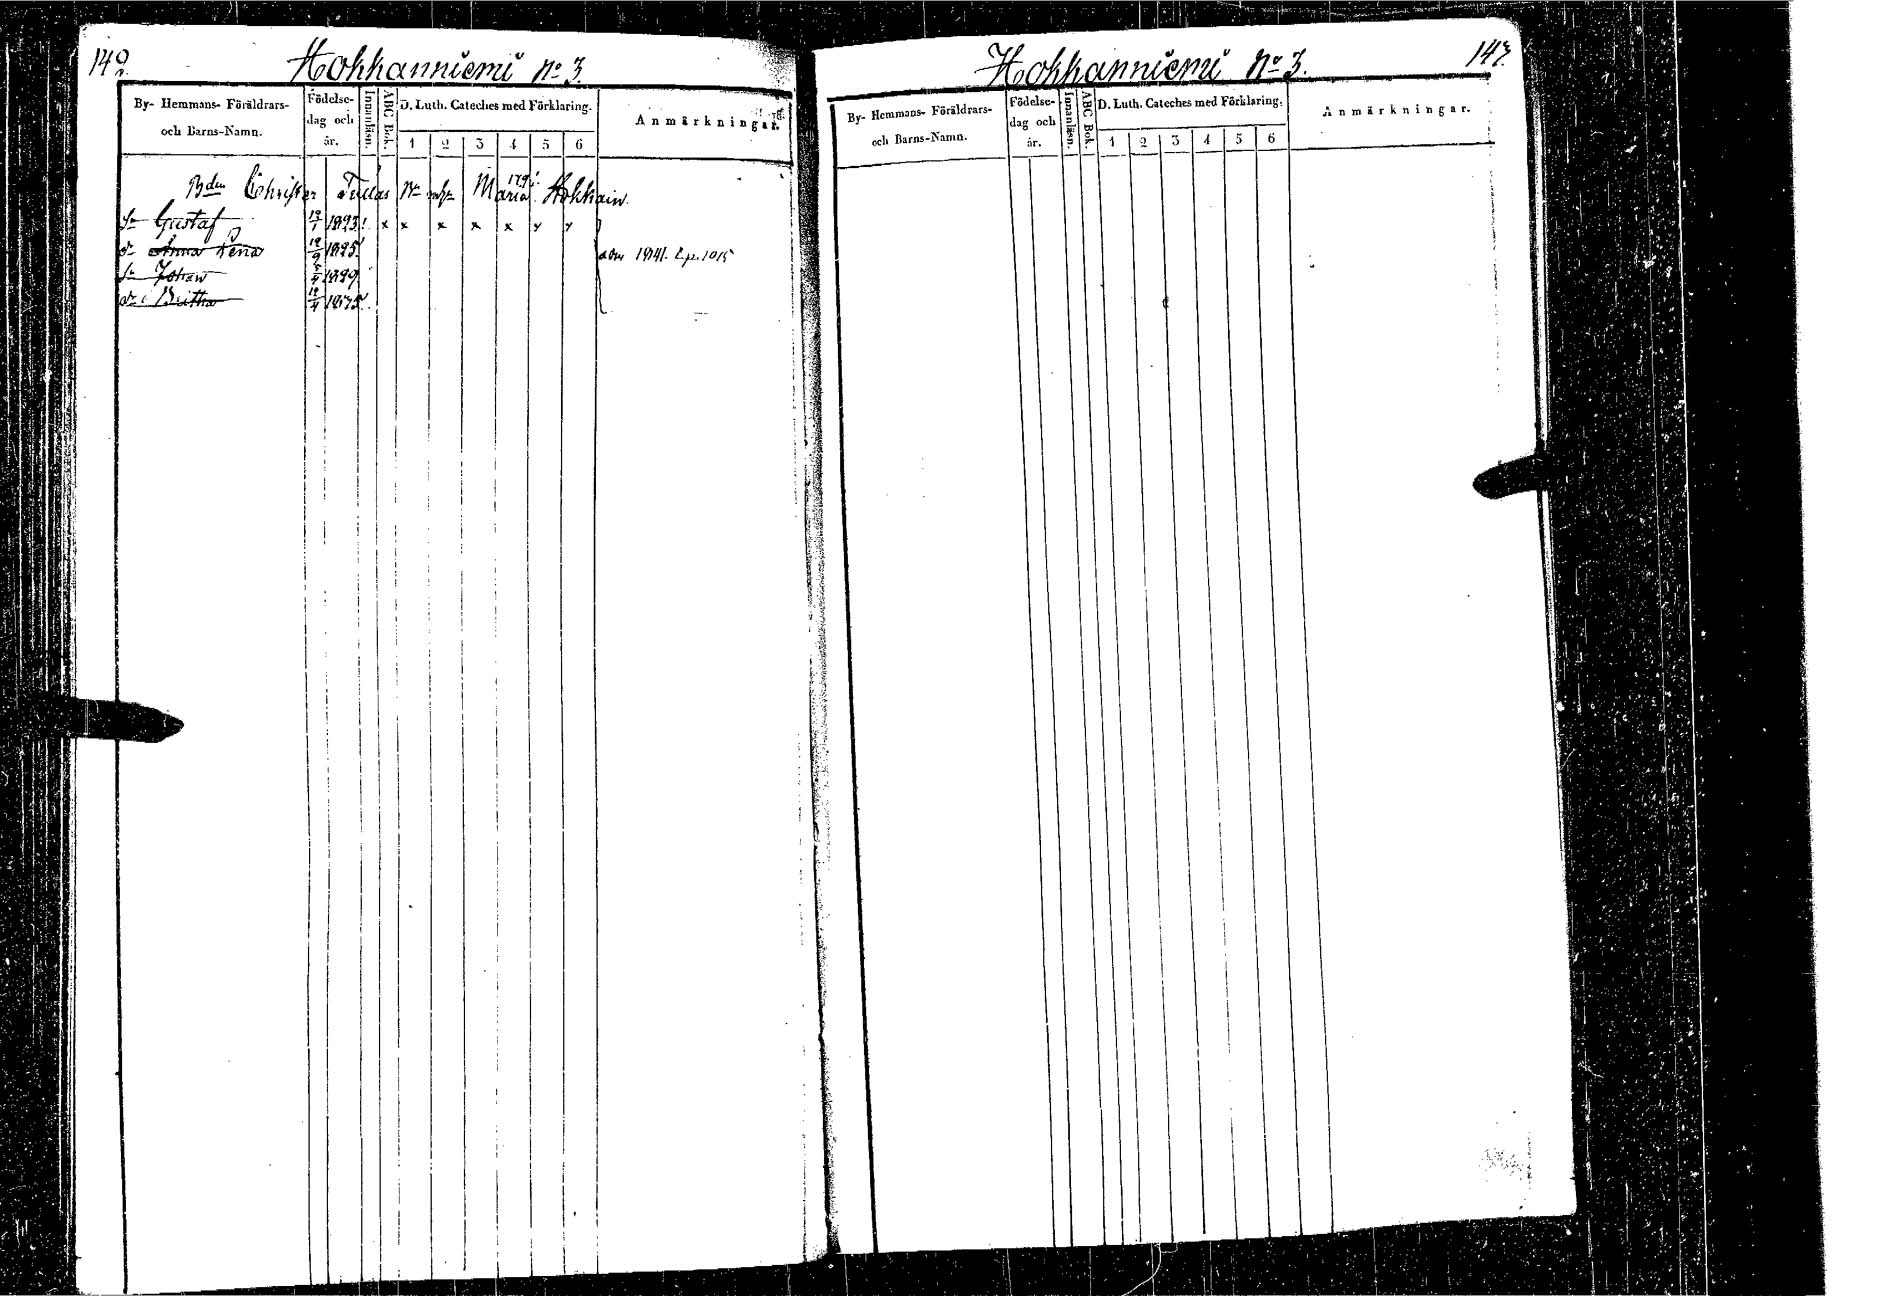 142.
Hokkanniemi No 3.
By- Hemmans- Föräldrars-
och Barns-Namn.
Födelse-
dag och
år.
Innanläsn.
ABC Bok.
D. Luth. Cateches med Förklaring.
1 2 3 4 5 6
Anmärkningar.
Bden Christer Maria Hokkain.
Sn Gustaf 1823 x x x x x x x
dr Anna Lena 1825
Sn Johan 1829
dr Britha 1835
1841.
Hokkanniemi No 3.
143.
By- Hemmans- Föräldrars-
och Barns-Namn.
Födelse-
dag och
år.
Innanläsn.
ABC Bok.
D. Luth. Cateches med Förklaring.
1 2 3 4 5 6
Anmärkningar.